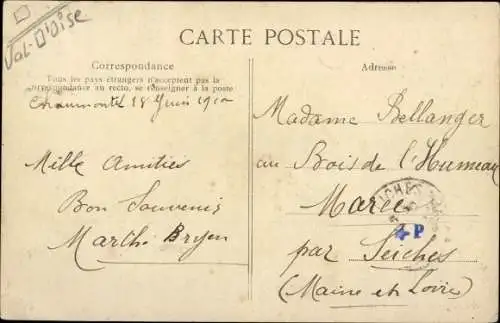 Val-D'Oise
CARTE POSTALE
Correspondance
Tous les pays étrangers n'acceptent pas la
correspondance au recto, se renseigner à la poste
Chaumontel 18 Juin 1910
Mille Amitiés
Bon Souvenir
Marthe Bryen
Adresse
Madame Bellanger
au Bois de l'Humeau
Marcé
4 P
par Seiches
(Maine et Loire)